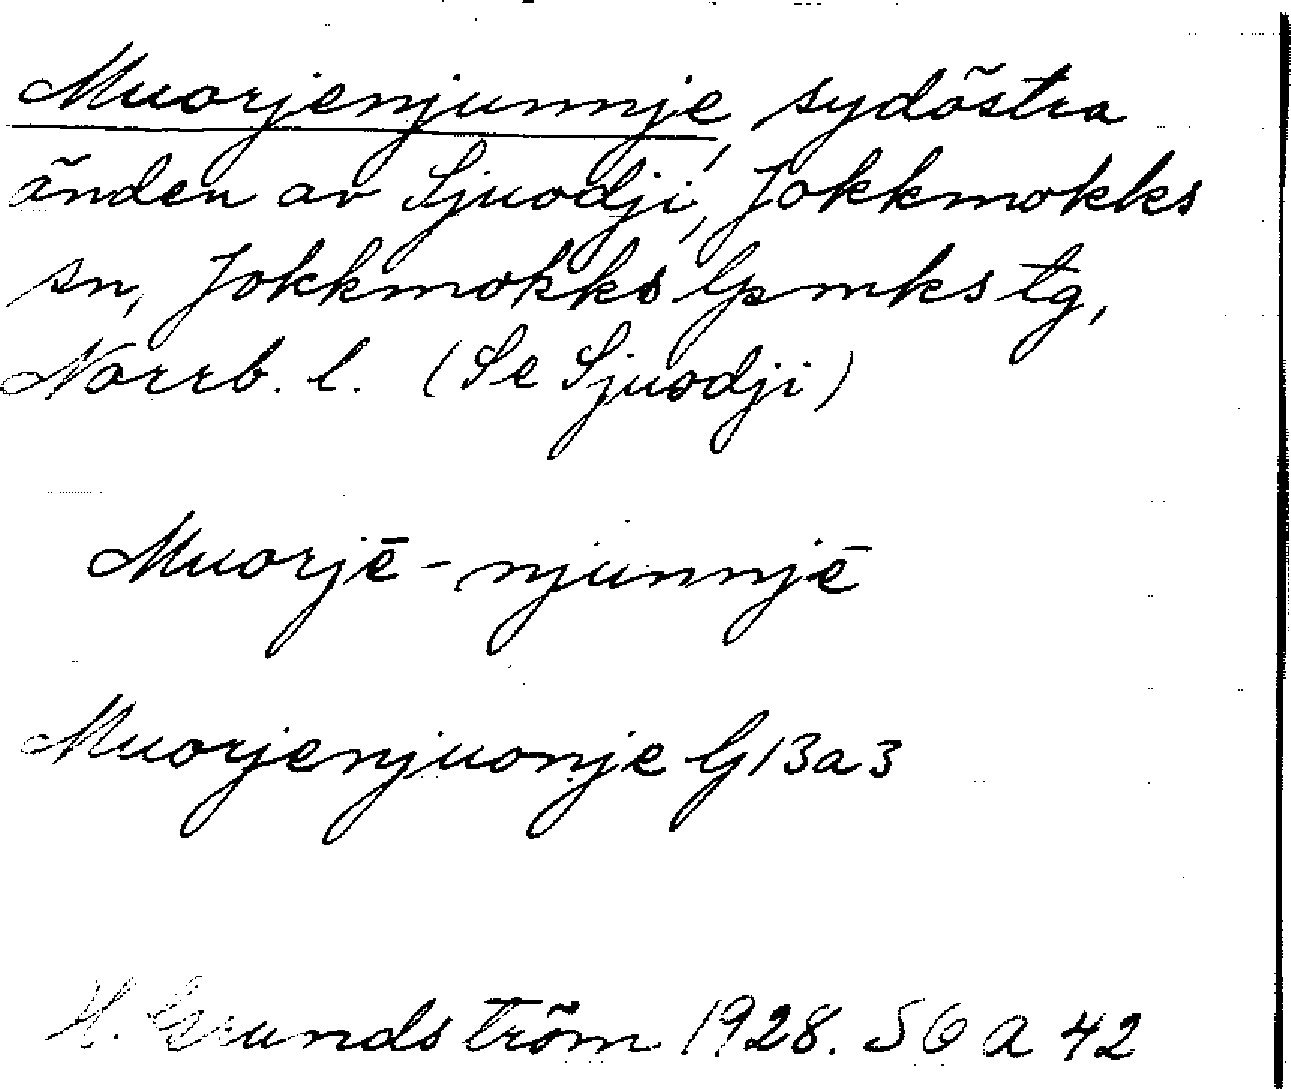 Muorjenjunnje, sydöstra
änden av Sjuodji, Jokkmokks
sn, Jokkmokks lpmks tg,
Norrb. l. (Se Sjuodji)
Muorjē-njunnjē
Muorjenjuonje G13a3
H. Grundström 1928. S6 a 42